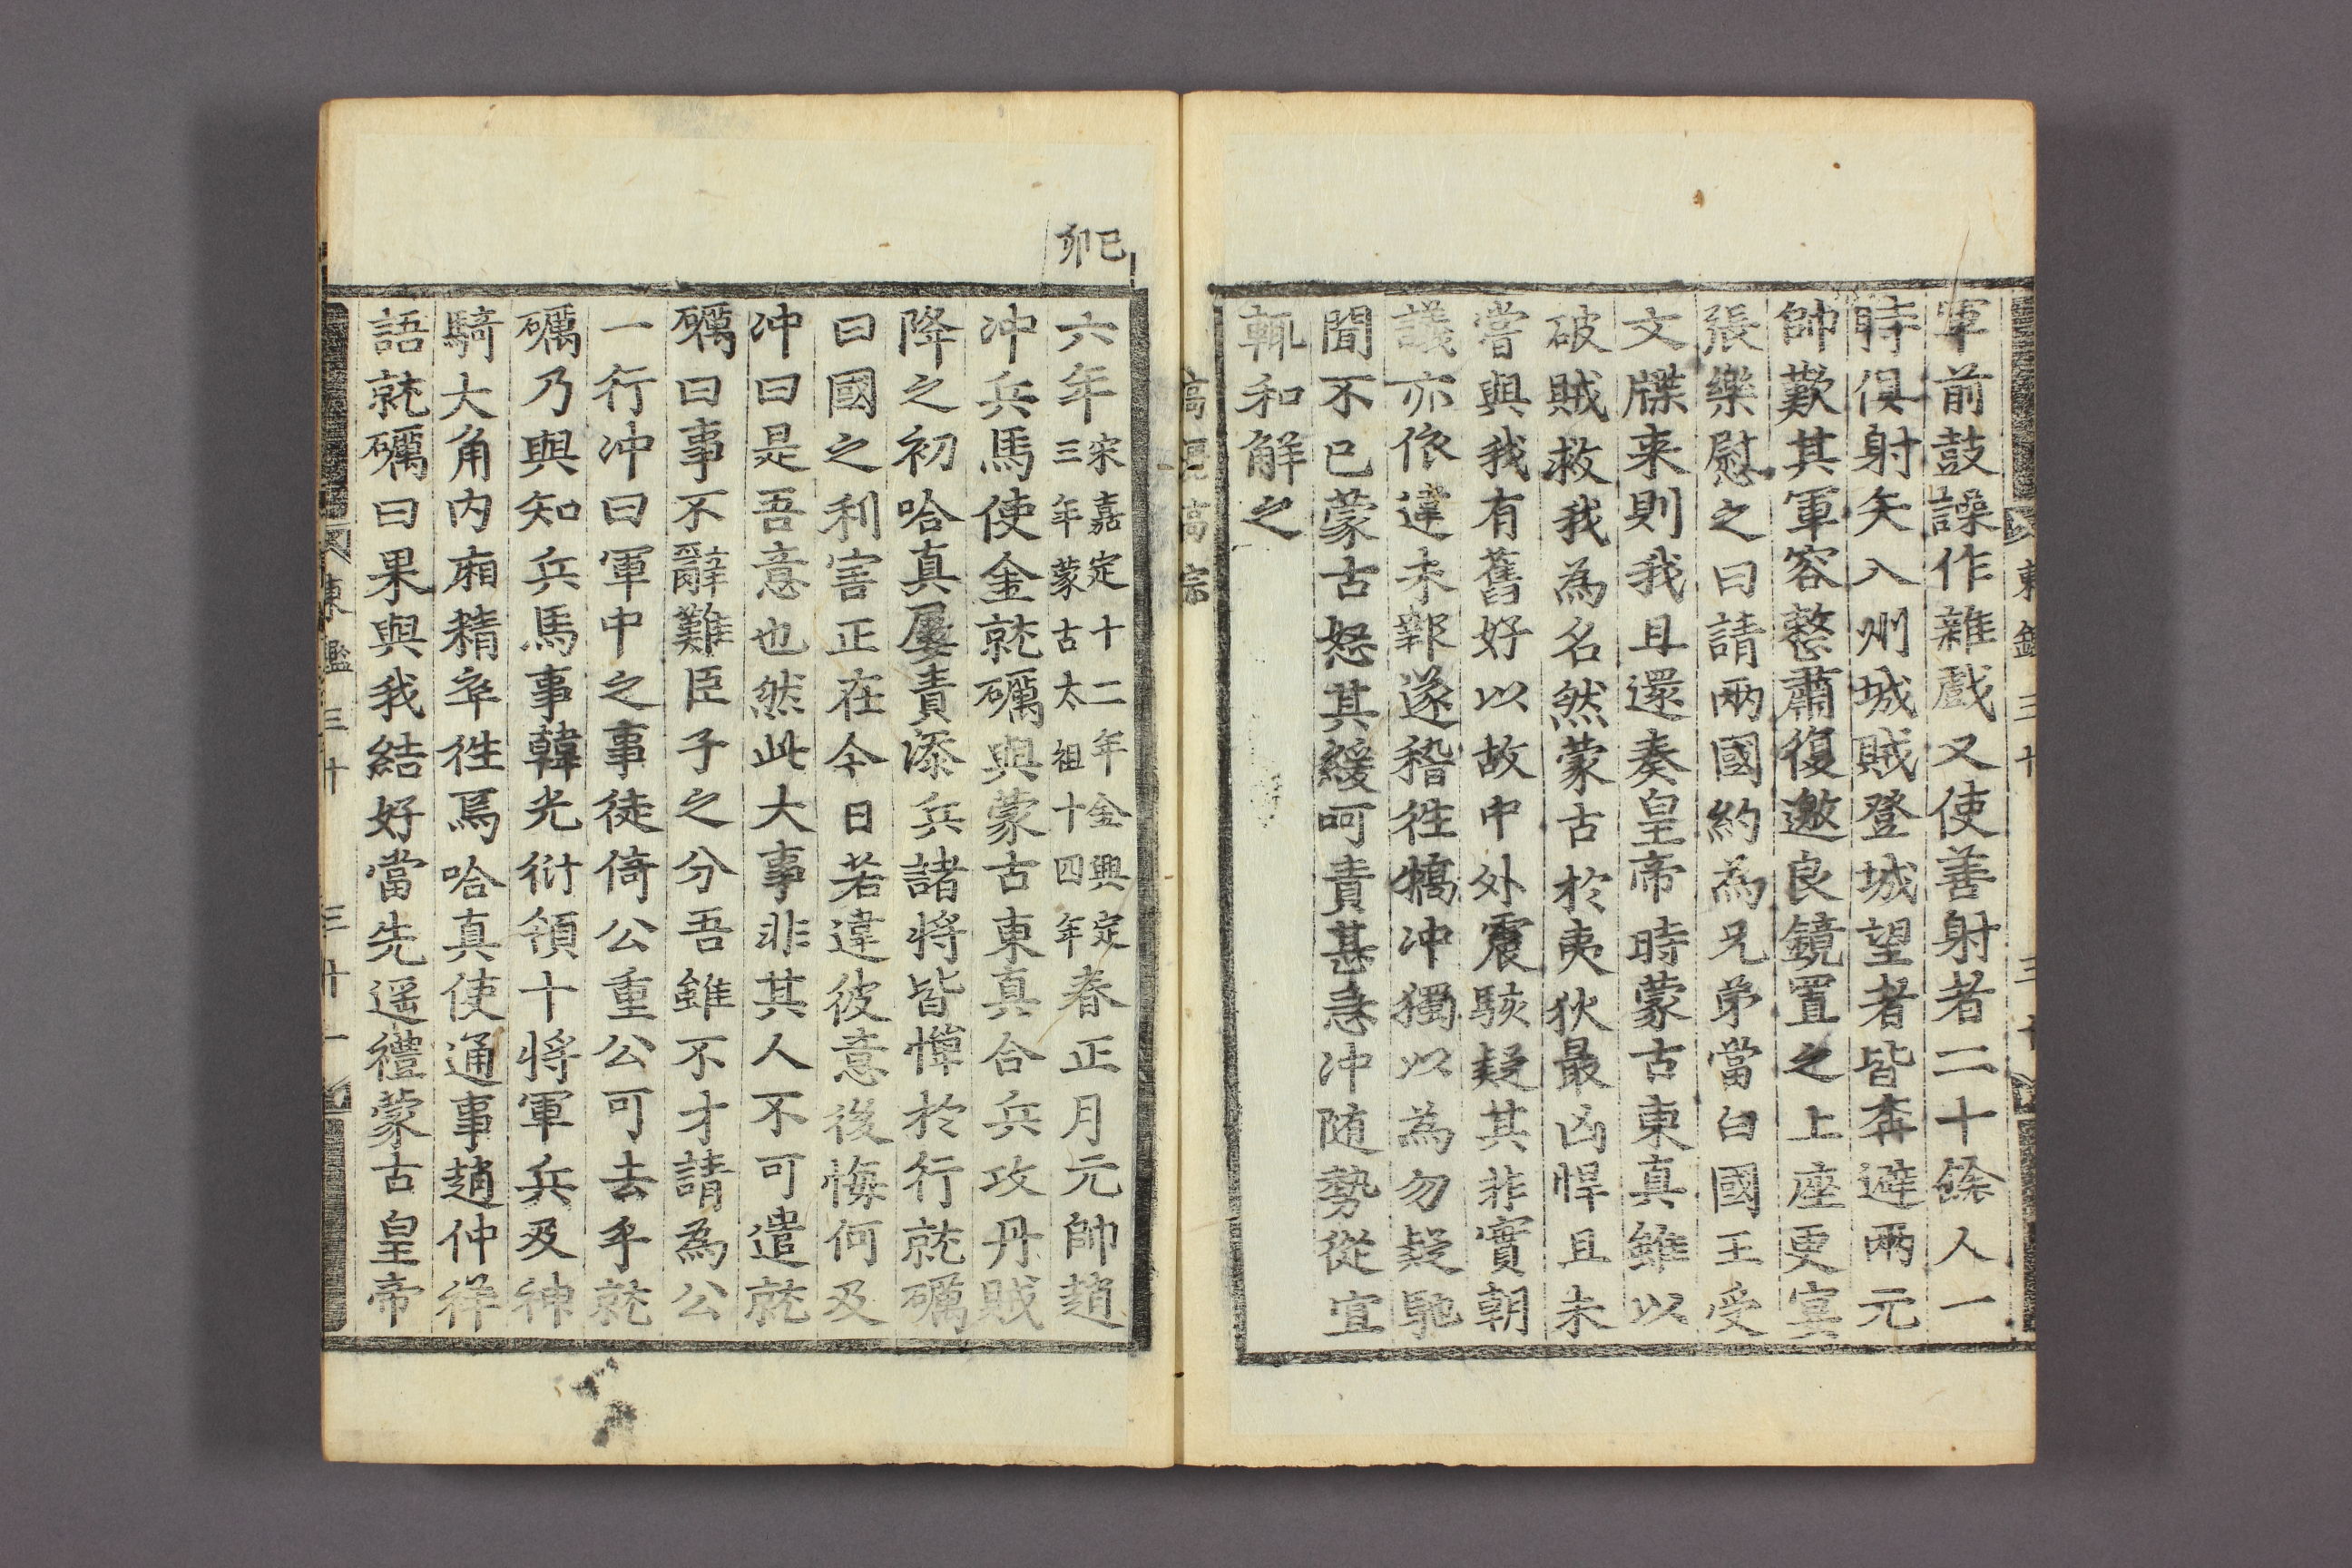 軍前鼓譟作雜戱又使善射者二十餘人一
時俱射矢入州城賊登城望者皆奔避兩元
帥歎其軍容整肅復邀良鏡置之上座更宴
張樂慰之曰請兩國約為兄弟當白國王受
文牒来則我且還奏皇帝時蒙古東真雖以
破賊救我為名然蒙古於夷狄最凶悍且未
嘗與我有舊好以故中外震駭疑其非實朝
議亦依違未報遂稽徃犒冲獨以為勿疑馳
聞不已蒙古怒其緩呵責甚急冲随勢從宜
輒和解之
高宗
東鑑三十
己卯
六年宋嘉定十二年金興定三年蒙古太祖十四年春正月元帥趙
冲兵馬使金就礪與蒙古東真合兵攻丹賊
降之初哈真屢責添兵諸將皆憚於行就礪
曰國之利害正在今日若違彼意後悔何及
冲曰是吾意也然此大事非其人不可遣就
礪曰事不辭難臣子之分吾雖不才請為公
一行冲曰軍中之事徒倚公重公可去乎就
礪乃與知兵馬事韓光衍領十將軍兵及神
騎大角内廂精卒徃焉哈真使通事趙仲祥
語就礪曰果與我結好當先遥禮蒙古皇帝
東鑑三十 三十一